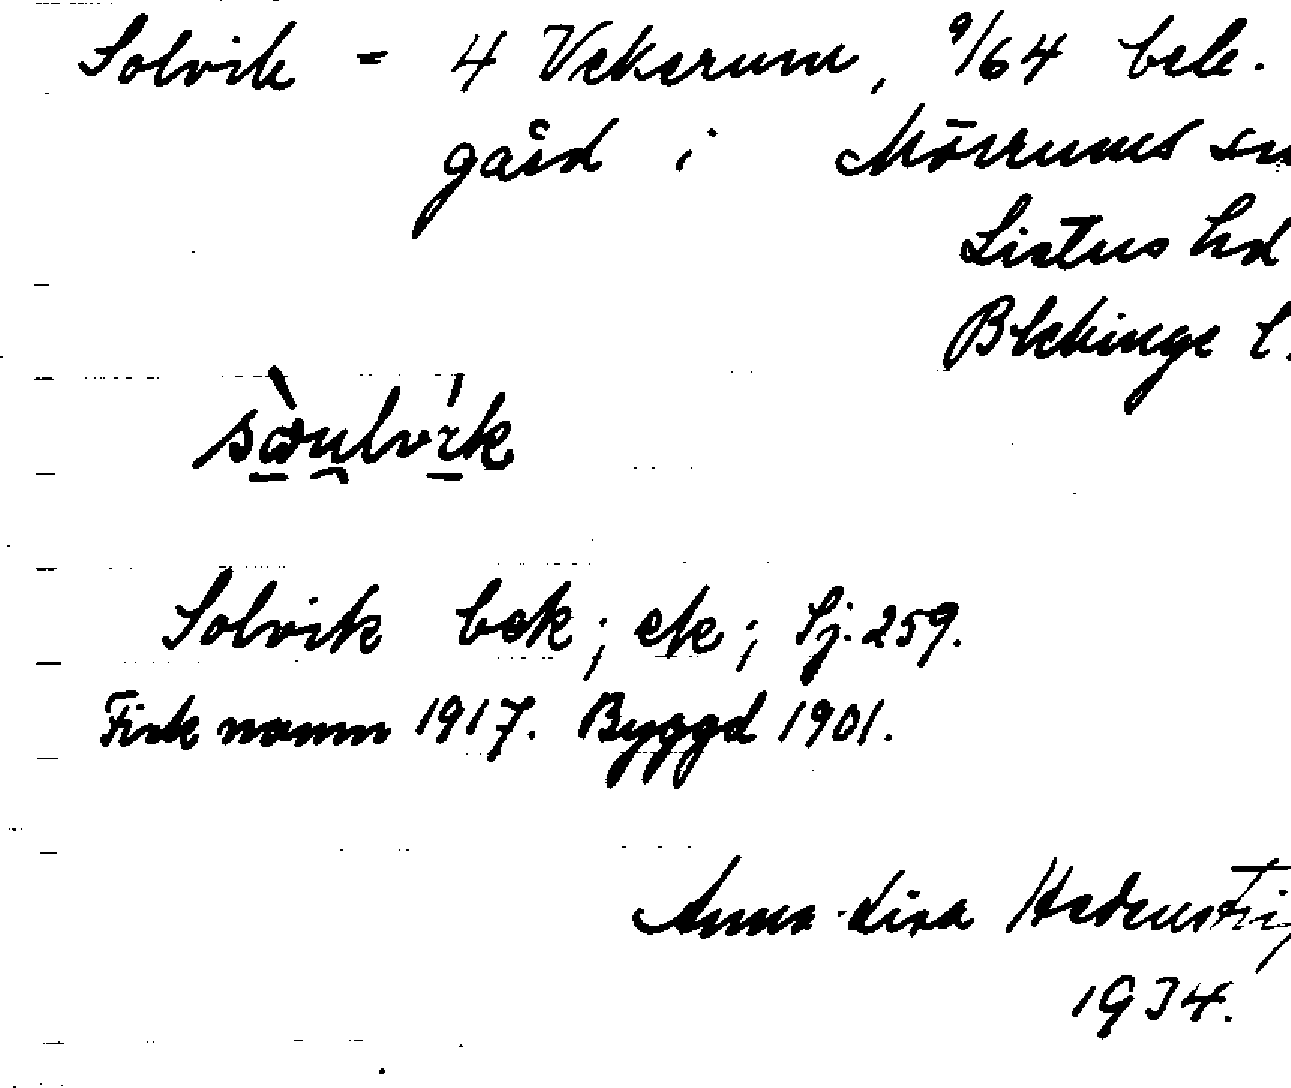 Solvik = 4 Vekerum, 9/64 bek.
gård i Mörrums sn
Listers hd
Blekinge l.
sœulvik
Solvik bek; ek; Sj. 259.
Fick namn 1917. Byggd 1901.
Anna-Lisa
1934.